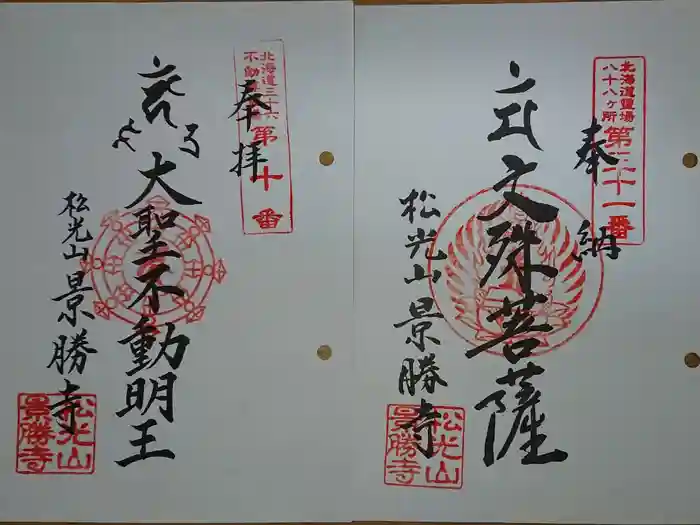 北海道三十六
不動
第十番
奉拝
大聖不動明王
松光山
景勝寺
松光山
景勝寺
北海道霊場
八十八ヶ所
十一番
奉納
文殊菩薩
松光山
景勝寺
松光山
景勝寺